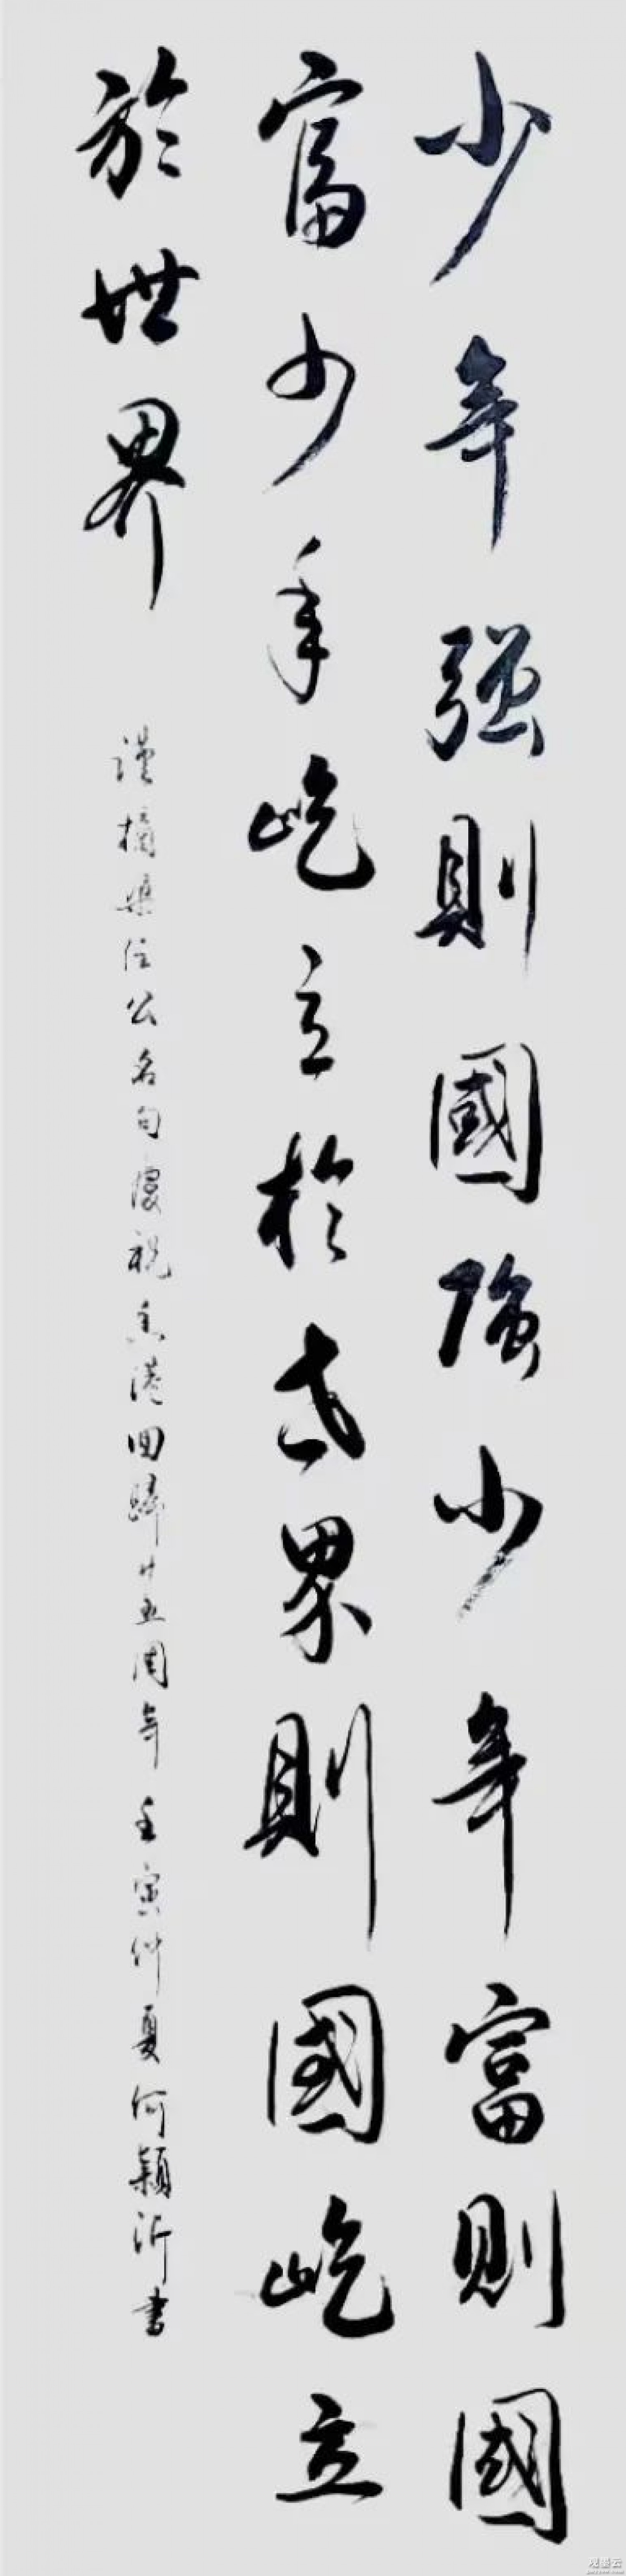 少年强則國强少年富則國
富少年屹立於世界則國屹立
於世界
謹摘集任公名句慶祝香港回歸廿五周年 壬寅仲夏何穎沂書